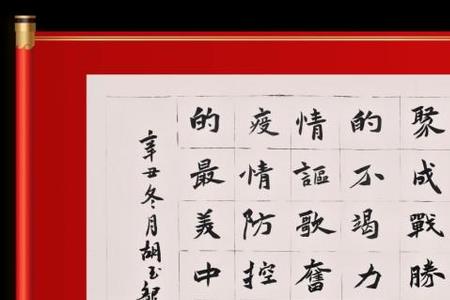 聚成戰勝
的不竭力
情謳歌奮
疫情防控
的最美中
辛丑冬月胡玉